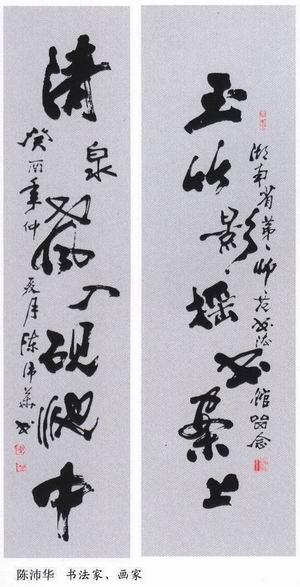 玉竹影摇书案上
湖南省第一师范书法馆留念
清泉飛入砚池中
癸酉年仲夏月陈沛华书
陈沛华 书法家、画家